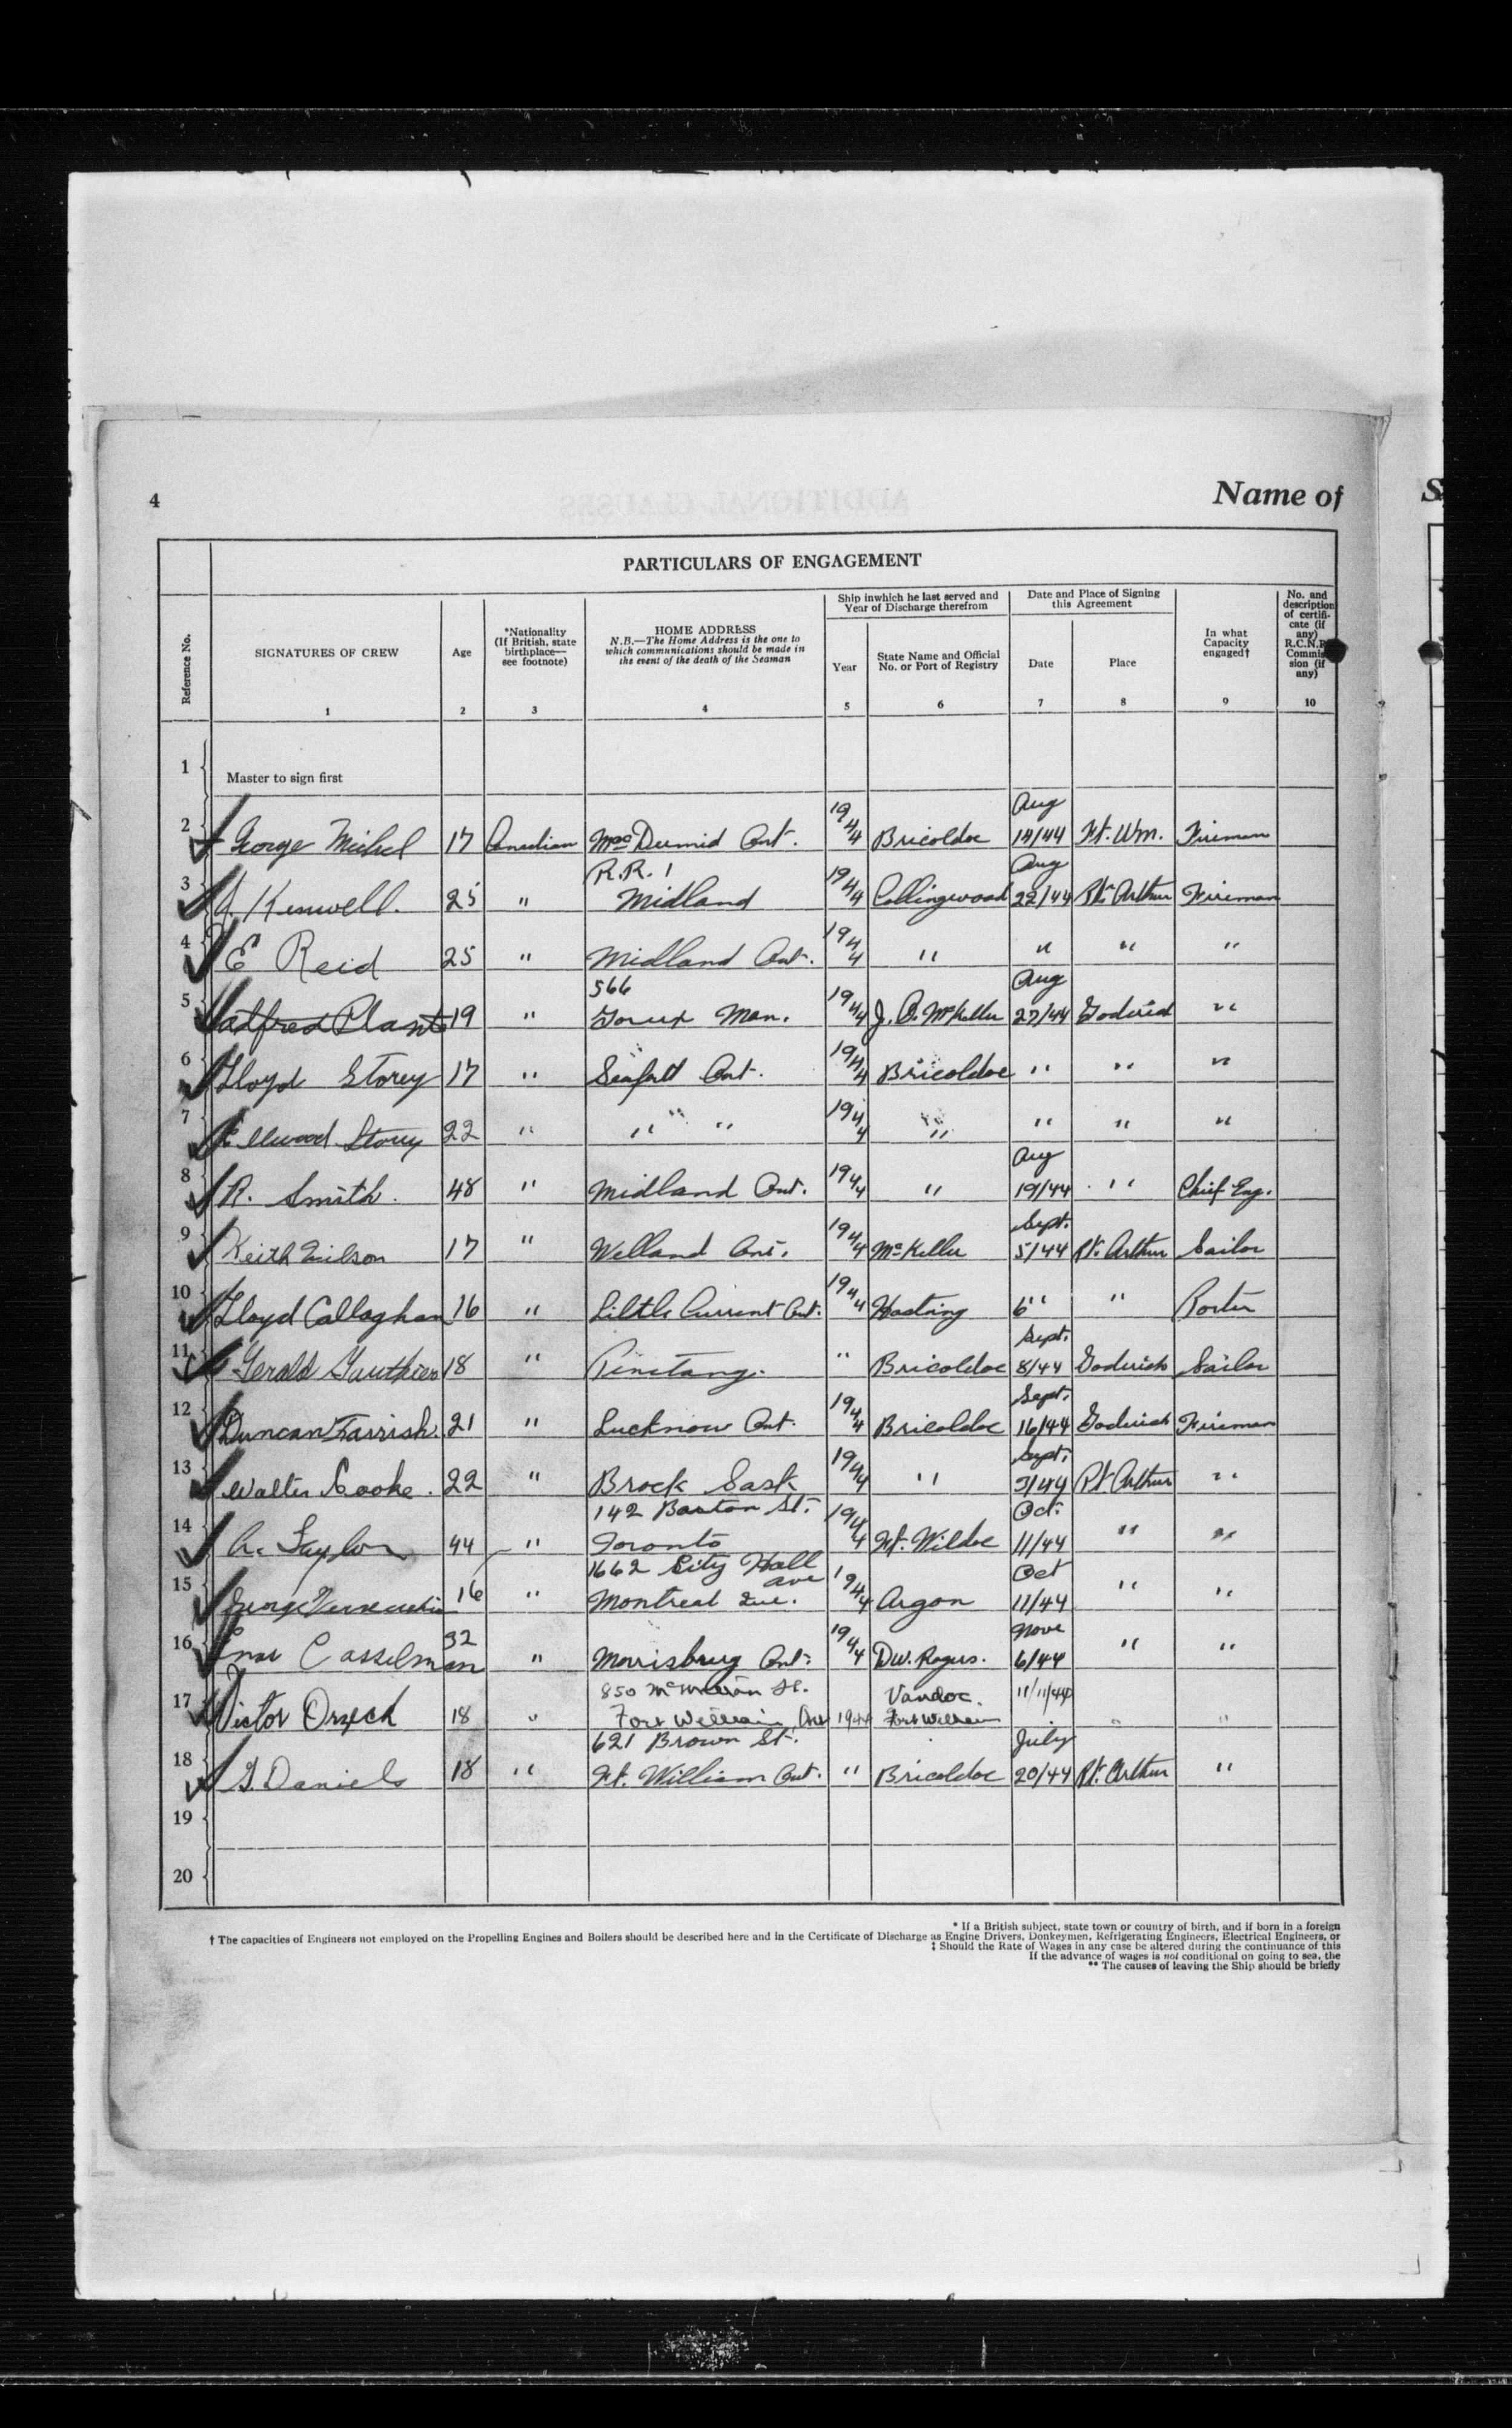 4
Name of
S
PARTICULARS OF ENGAGEMENT
Reference No.
SIGNATURES OF CREW
Age
*Nationality
(If British, state
birthplace—
see footnote)
HOME ADDRESS
N.B.—The Home Address is the one to
which communications should be made in
the event of the death of the Seaman
Ship in which he last served and
Year of Discharge therefrom
Year
State Name and Official
No. or Port of Registry
Date and Place of Signing
this Agreement
Date
Place
In what
Capacity
engaged†
No. and
description
of certifi-
cate (if
any)
R.C.N.R.
Commis-
sion (if
any)
1 2 3 4 5 6 7 8 9 10
1 Master to sign first
2 George Michel 17 Canadian MacDiarmid Ont. 1944 Bricoldoc Aug 14/44 Ft. Wm. Fireman
3 J. Keswell. 25 " R.R. 1 Midland 1944 Collingwood Aug 22/44 Pt. Arthur Fireman
4 E Reid 25 " Midland Ont. 1944 " " " "
5 Alfred Plante 19 " 566 Man. 1944 J. B. McKeller Aug 27/44 Goderich "
6 Lloyd Storey 17 " Ont. 1944 Bricoldoc " " "
7 Ellwood Storey 22 " " " 1944 " " " "
8 R. Smith. 48 " Midland Ont. 1944 " Aug 19/44 " Chief Eng.
9 Keith Wilson 17 " Welland Ont. 1944 McKeller Sept. 5/44 Pt. Arthur Sailor
10 Lloyd Callaghan 16 " Little Current Ont. 1944 Hastring 6 " " Porter
11 Gerald Gauthier 18 " Penetang. " Bricoldoc Sept. 8/44 Goderich Sailor
12 Duncan Farrish. 21 " Lucknow Ont. 1944 Bricoldoc Sept. 16/44 Goderich Fireman
13 Walter Cooke. 22 " Brock Sask 1944 " Sept. 3/44 Pt Arthur "
14 A. Taylor 44 " 142 Boston St. Toronto 1944 Ft. Wildoc Oct. 11/44 " "
15 George 16 " 1662 City Hall ave Montreal Que. 1944 Argon Oct 11/44 " "
16 Casselman 32 " Morrisbrug Ont. 1944 D.W. Rogers. Nove 6/44 " "
17 Victor Orzech 18 " 850 St. Fort William Ont 1944 Vandoc. Fort William 11/11/44 " "
18 G. Daniels 18 " 621 Brown St. Ft. William Ont. " Bricoldoc July 20/44 Pt. Arthur "
19
20
* If a British subject, state town or country of birth, and if born in a foreign
† The capacities of Engineers not employed on the Propelling Engines and Boilers should be described here and in the Certificate of Discharge as Engine Drivers, Donkeymen, Refrigerating Engineers, Electrical Engineers, or
‡ Should the Rate of Wages in any case be altered during the continuance of this
If the advance of wages is not conditional on going to sea, the
** The causes of leaving the Ship should be briefly